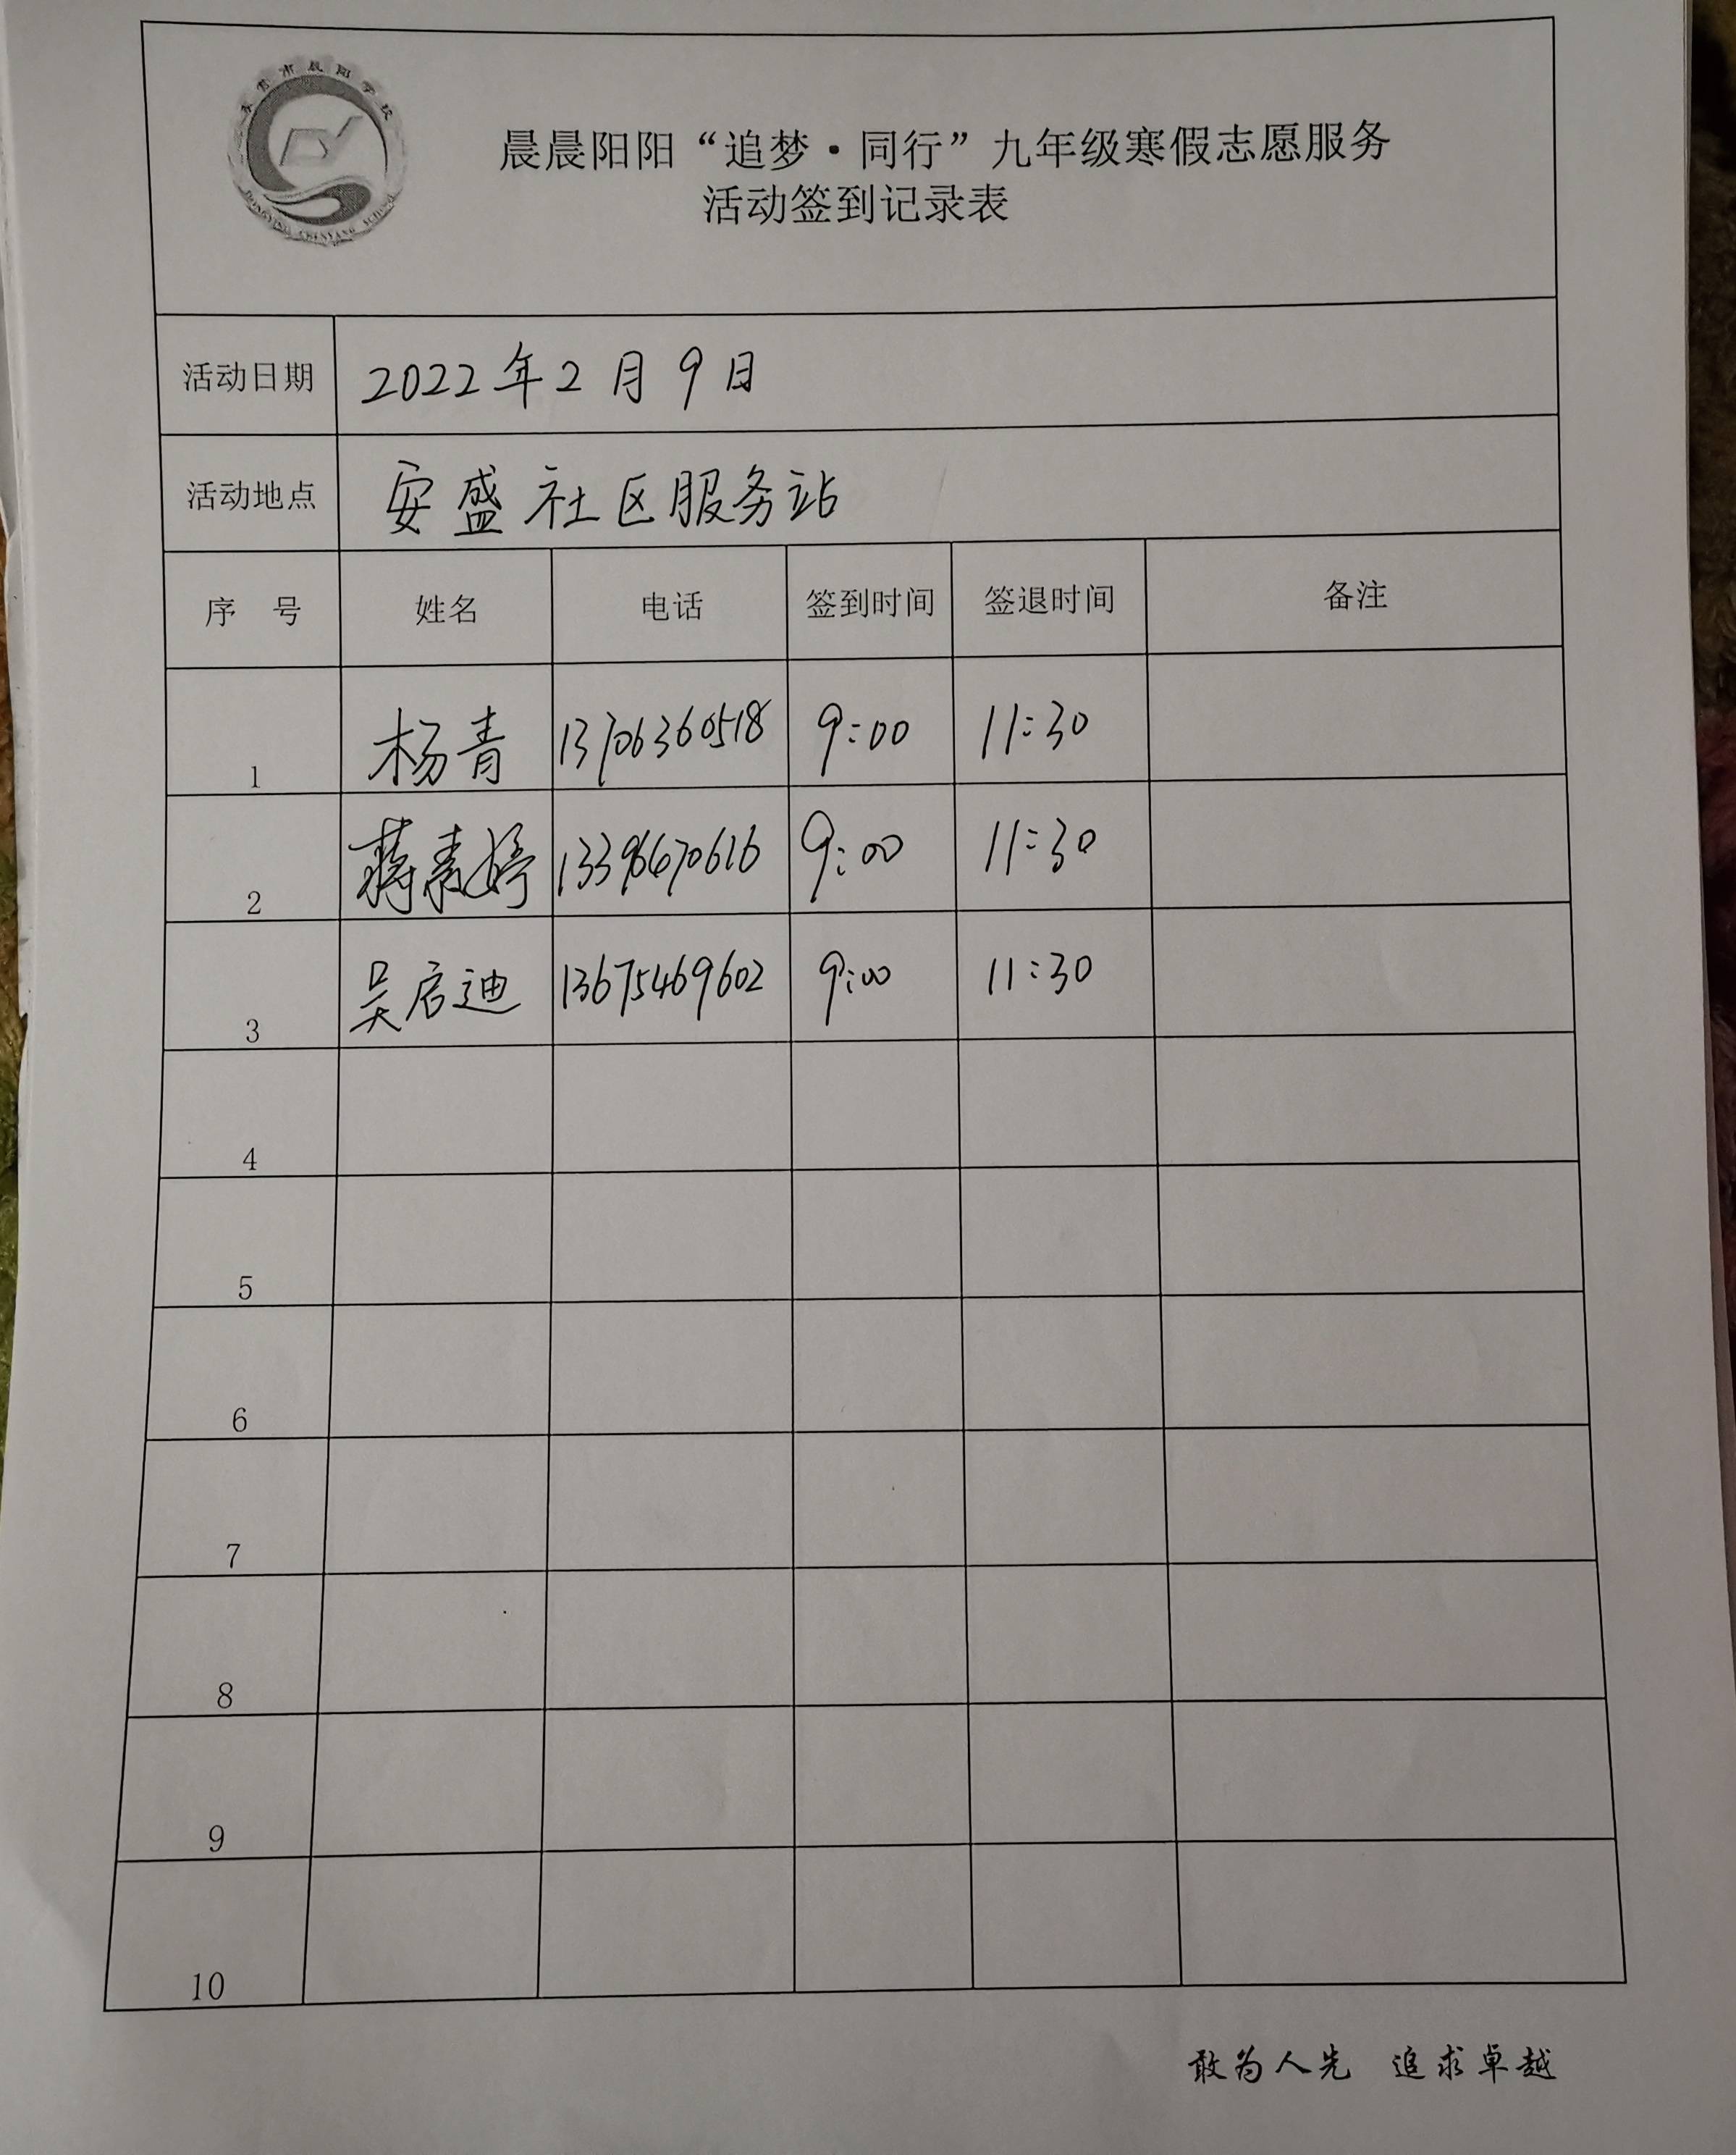 东营市晨阳学校
DONGYING CHENYANG SCHOOL
晨晨阳阳“追梦·同行”九年级寒假志愿服务
活动签到记录表
活动日期 2022年2月9日
活动地点 安盛社区服务站
序 号 姓名 电话 签到时间 签退时间 备注
1 杨青 13706360518 9:00 11:30
2 蒋素婷 13396670616 9:00 11:30
3 吴启迪 13675469602 9:00 11:30
4
5
6
7
8
9
10
敢为人先 追求卓越